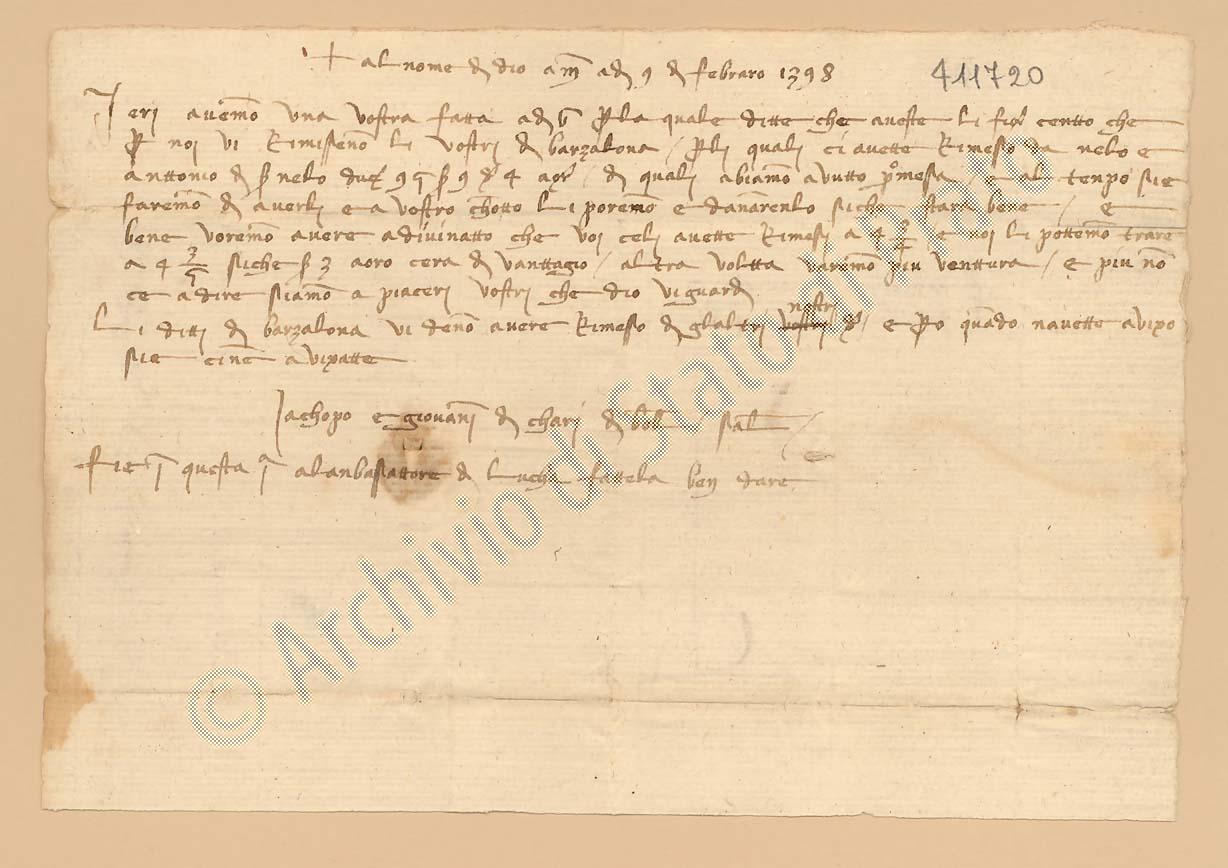 + al nome d dio am ad 9 d febraro 1398
411720
Jeri avemo una vostra fatta ad 6 p la quale ditte che aveste li fior centto che
p noi vi Rimisseno li vostri d barzalona / p li quali ci avette Rimesso da nelo e
anttonio d s nelo duc 95 s 9 d 4 aor / d quali abiamo avutto promesa / e al tenpo sie
faremo d averli e a vostro chotto li poremo e danarenlo siche stara bene / e
bene voremo avere adivinatto che voi celi avette Rimessi a 4 e noi li pottemo trare
a 4 siche s 3 aoro cera d vanttagio / altra voltta varemo piu venttura / e piu no
ce a dire siamo a piaceri vostri che dio vi guard
Li ditti d barzalona vi deno avere Rimesso d glaltri vostri nostri d / e po quado navette avixo
sie cine avixatte
Jachopo e giovani d chari d bol sal
Fie j questa j al anbasiattore d Lucha fattela ben dare
© Archivio di Stato di Prato